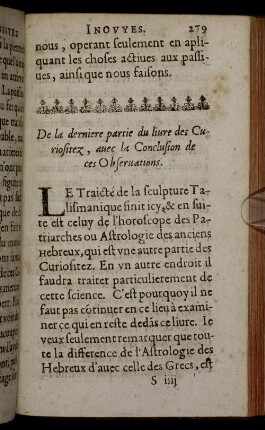 INOVYES. 279
nous, operant seulement en apli-
quant les choses actiues aux passi-
ues, ainsi que nous faisons.
De la derniere partie du liure des Cu-
riositez, auec la Conclusion de
ces Obseruations.
LE Traicté de la sculpture Ta-
lismanique finit icy, & en sui-
te est celuy de l'horoscope des Pa-
triarches ou Astrologie des anciens
Hebreux, qui est vne autre partie des
Curiositez. En vn autre endroit il
faudra traiter particulierement de
cette science. C'est pourquoy il ne
faut pas cōtinuer en ce lieu à exami-
ner ce qui en reste dedās ce liure. Ie
veux seulement remarquer que tou-
te la difference de l'Astrologie des
Hebreux d'auec celle des Grecs, est
S iiij